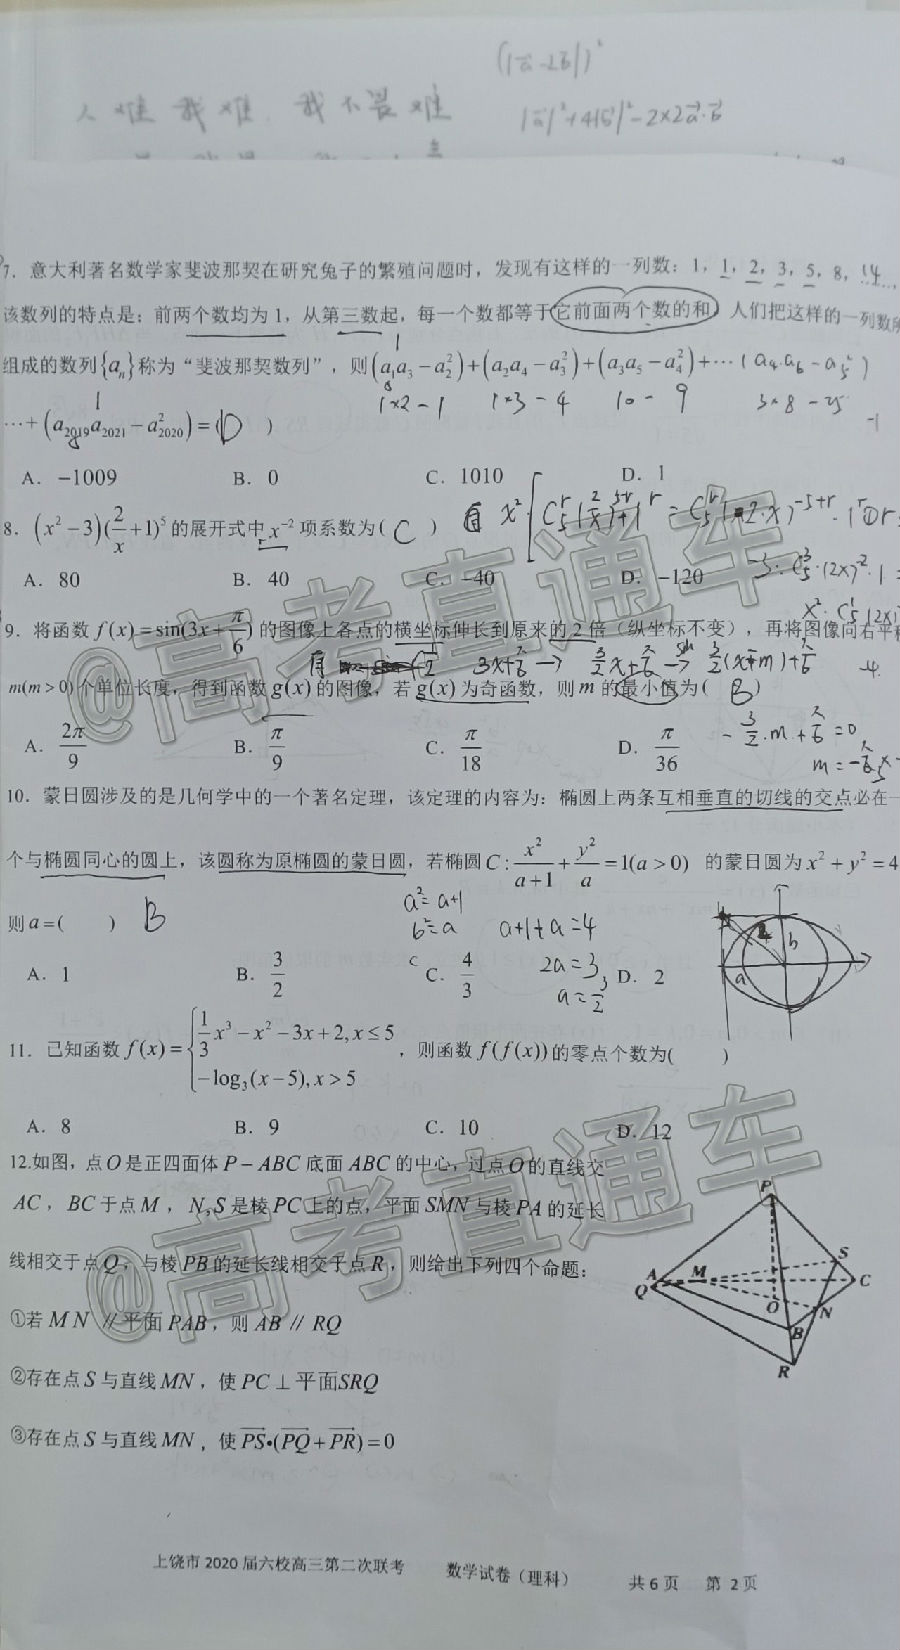 (|a⃗-2b⃗|)²
人难我难,我不畏难
|a⃗|²+4|b⃗|²-2×2a⃗·b⃗
7. 意大利著名数学家斐波那契在研究兔子的繁殖问题时，发现有这样的一列数：1，1，2，3，5，8，
该数列的特点是：前两个数均为 1，从第三数起，每一个数都等于它前面两个数的和，人们把这样的一列数所
组成的数列{aₙ}称为“斐波那契数列”，则(a₁a₃-a₂²)+(a₂a₄-a₃²)+(a₃a₅-a₄²)+⋯ (a₄·a₆-a₅²)
1×2-1 1×3-4 10-9 3×8-25 -1
⋯+(a₂₀₁₉a₂₀₂₁-a₂₀₂₀²)=( D )
A. -1009 B. 0 C. 1010 D. 1
8. (x²-3)(2/x+1)⁵的展开式中x⁻²项系数为( C )
A. 80 B. 40 C. -40 D. -120
9. 将函数 f(x)=sin(3x+π/6) 的图像上各点的横坐标伸长到原来的 2 倍（纵坐标不变），再将图像向右平移
3x+π/6 → 3/2x+π/6 → 3/2(x-m)+π/6
m(m>0)个单位长度，得到函数g(x)的图像，若g(x)为奇函数，则m的最小值为( B )
-3/2·m+π/6=0
A. 2π/9 B. π/9 C. π/18 D. π/36
10. 蒙日圆涉及的是几何学中的一个著名定理，该定理的内容为：椭圆上两条互相垂直的切线的交点必在一
个与椭圆同心的圆上，该圆称为原椭圆的蒙日圆，若椭圆C:x²/(a+1)+y²/a=1(a>0) 的蒙日圆为x²+y²=4
则a=( ) B
a²=a+1
b²=a a+1+a=4
2a=3
a=3/2
b
a
A. 1 B. 3/2 C. 4/3 D. 2
11. 已知函数f(x)={1/3x³-x²-3x+2,x≤5
-log₃(x-5),x>5 ，则函数f(f(x))的零点个数为( )
A. 8 B. 9 C. 10 D. 12
12.如图，点O是正四面体P-ABC底面ABC的中心，过点O的直线交
AC，BC于点M，N,S是棱PC上的点，平面SMN与棱PA的延长
线相交于点Q，与棱PB的延长线相交于点R，则给出下列四个命题：
①若MN∥平面PAB，则AB∥RQ
②存在点S与直线MN，使PC⊥平面SRQ
③存在点S与直线MN，使PS⃗•(PQ⃗+PR⃗)=0
P
S
A M C
Q
O N
B
R
@高考直通车
@高考直通车
上饶市 2020 届六校高三第二次联考 数学试卷（理科） 共 6 页 第 2页